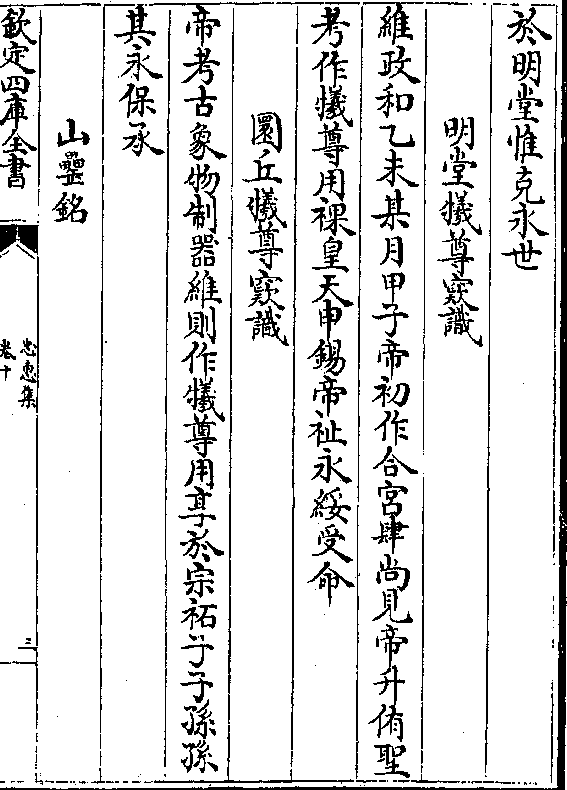 於明堂惟克永世
明堂犧尊窽識
維政和乙未某月甲子帝初作合宮肆尚見帝升侑聖
考作犧尊用祼皇天申錫帝祉永綏受命
圜丘犧尊窽識
帝考古象物制器維則作犧尊用享於宗祏子子孫孫
其永保承
山罍銘
欽定四庫全書
忠惠集
卷十
三